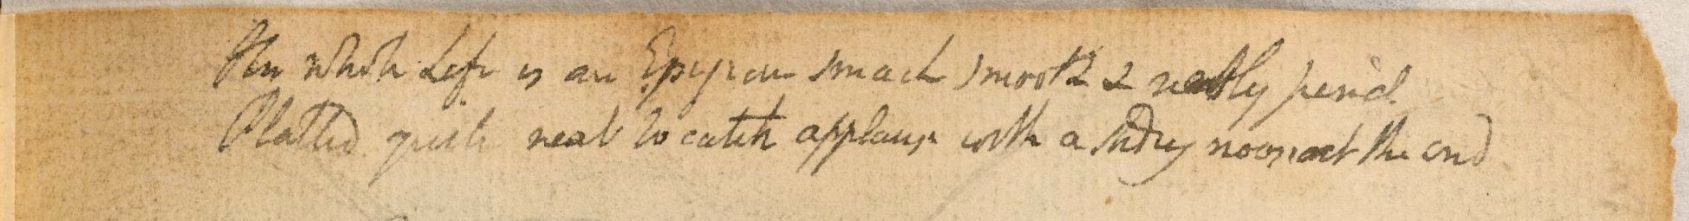 Her whole Life is an Epigram smack smooth & neatly pend
Platted quite neat to catch applause with a sliding noose at the end